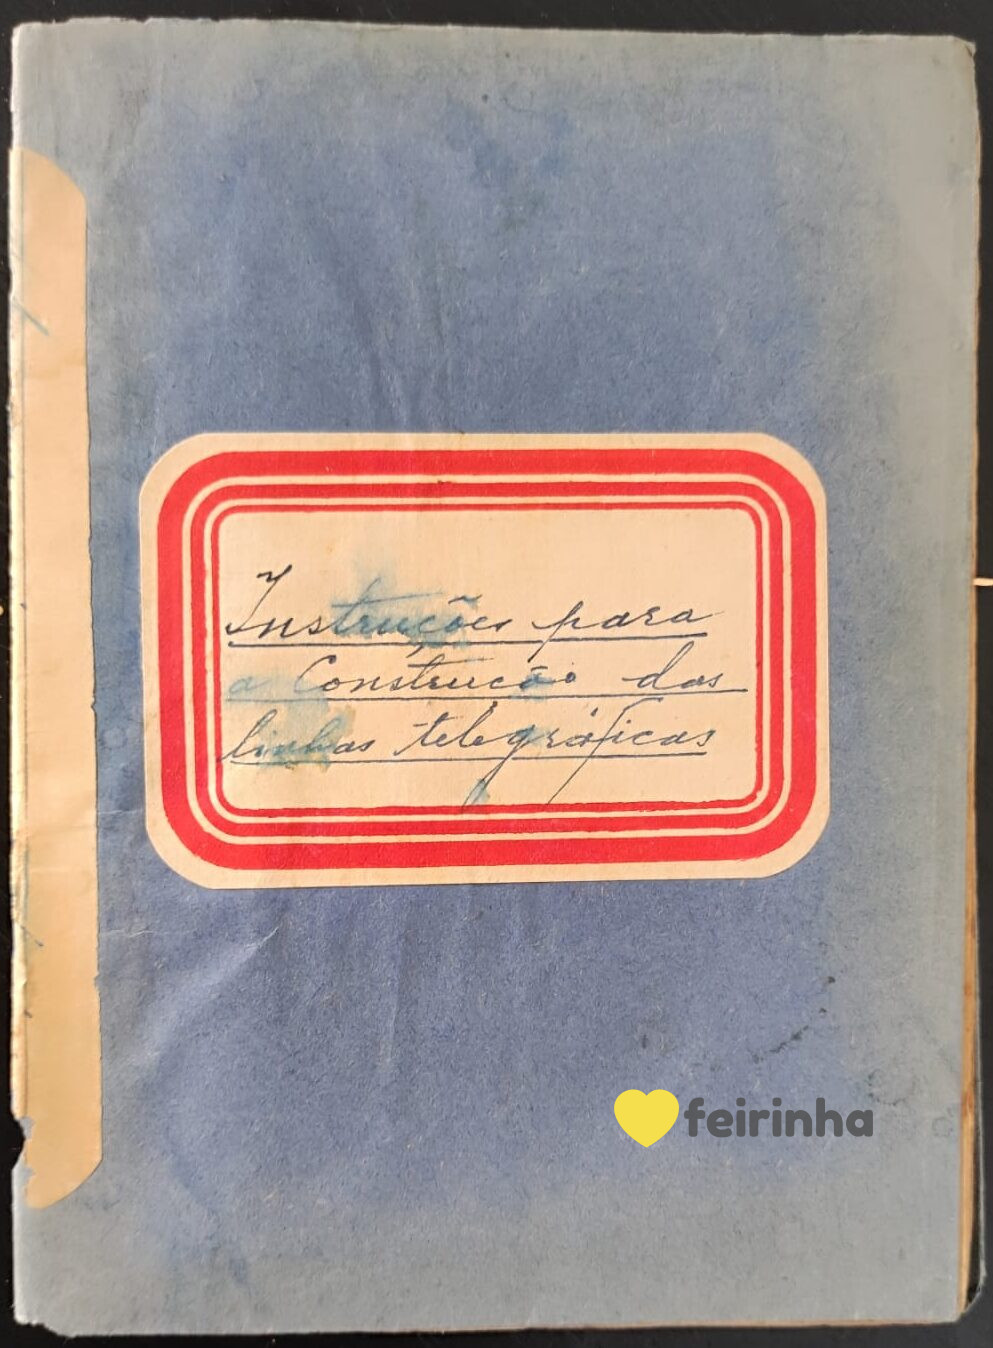 Instruções para
a Construção das
linhas telegráficas
feirinha